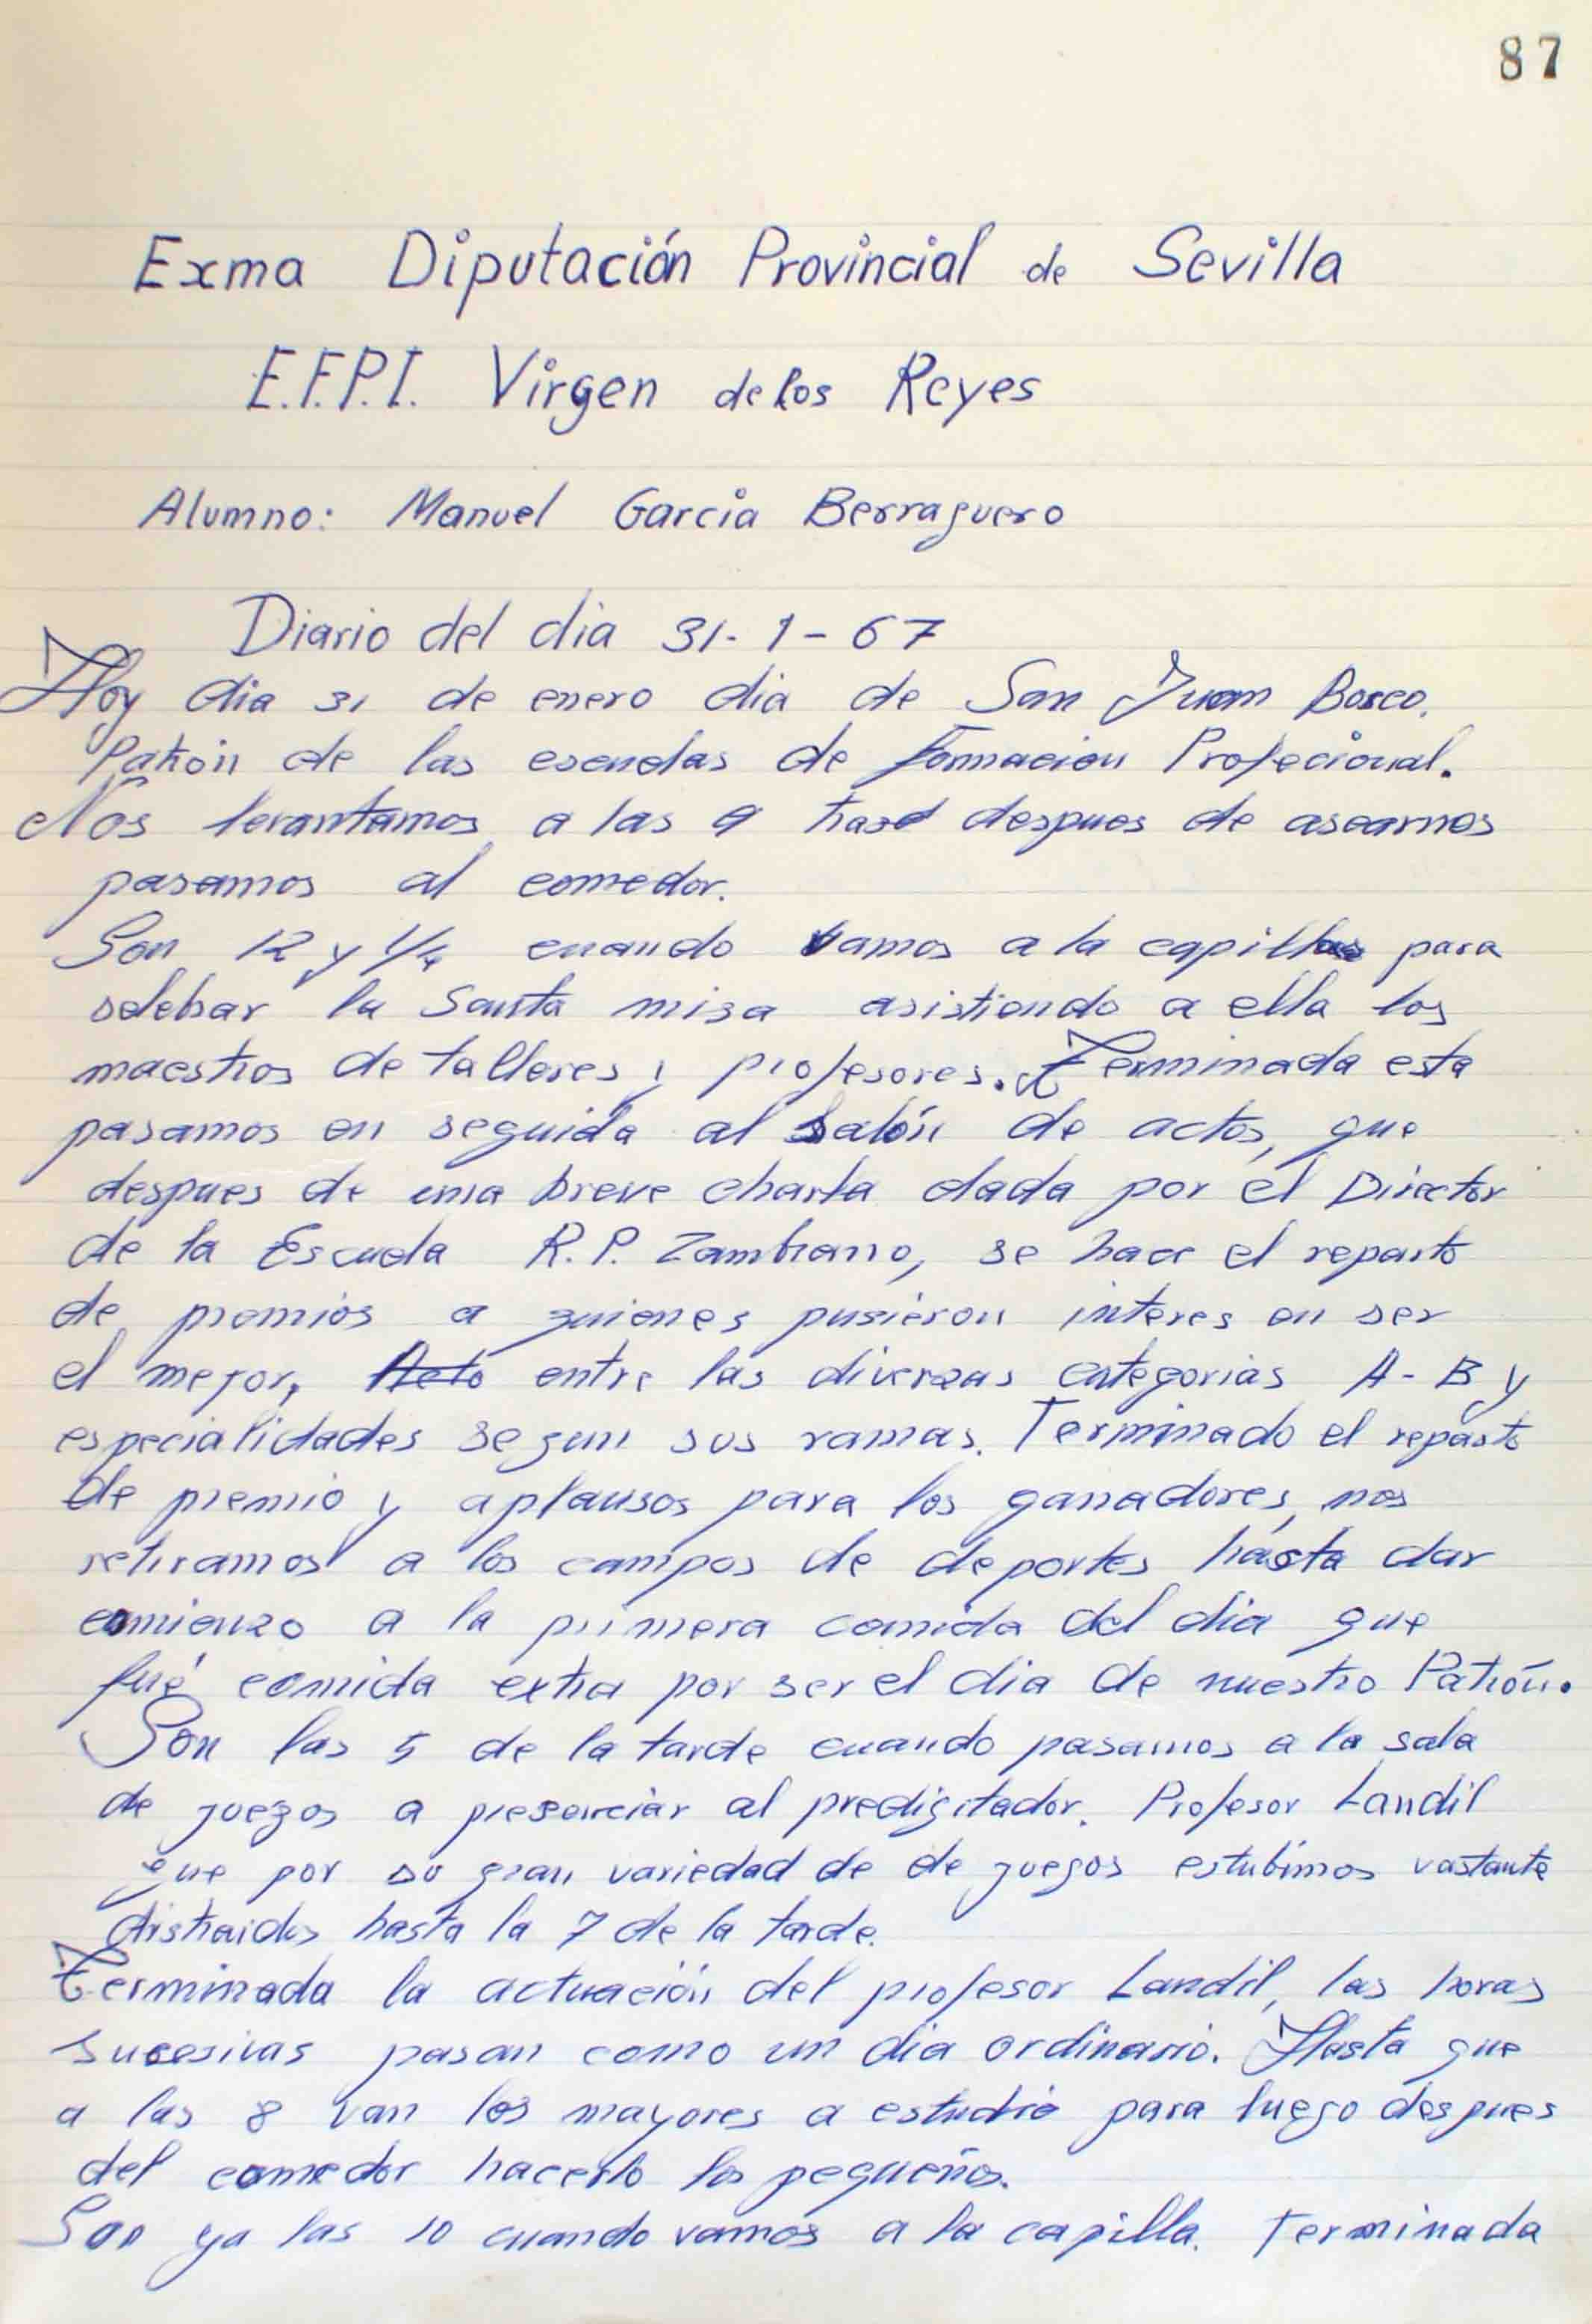 87
Exma Diputación Provincial de Sevilla
E.F.P.I. Virgen de los Reyes
Alumno: Manuel Garcia Berraguero
Diario del dia 31-1-67
Hoy dia 31 de enero dia de San Juan Bosco.
Patrón de las escuelas de Formacion Profecional.
Nos levantamos a las 9 despues de asearnos
pasamos al comedor.
Son 12 y 1/4 cuando vamos a la capilla para
selebrar la Santa misa asistiendo a ella los
maestros de talleres y profesores. Terminada esta
pasamos en seguida al Salón de actos, que
despues de una breve charla dada por el Director
de la Escuela R.P. Zambrano, se hace el reparto
de premios a quienes pusieron interes en ser
el mejor, Acto entre las diverzas categorias A-B y
especialidades segun sus ramas. Terminado el reparto
de premio y aplausos para los ganadores, nos
retiramos a los campos de deportes hásta dar
comienzo a la primera comida del dia que
fué comida extra por ser el dia de nuestro Patrón.
Son las 5 de la tarde cuando pasamos a la sala
de juegos a presenciar al predigitador. Profesor Landil
que por su gran variedad de de juegos estubimos vastante
distraidos hasta la 7 de la tarde.
Terminada la actuación del profesor Landil, las horas
sucesivas pasan como un dia ordinario. Hasta que
a las 8 van los mayores a estudio para luego despues
del comedor hacerlo los pequeños.
Son ya las 10 cuando vamos a la capilla. Terminada